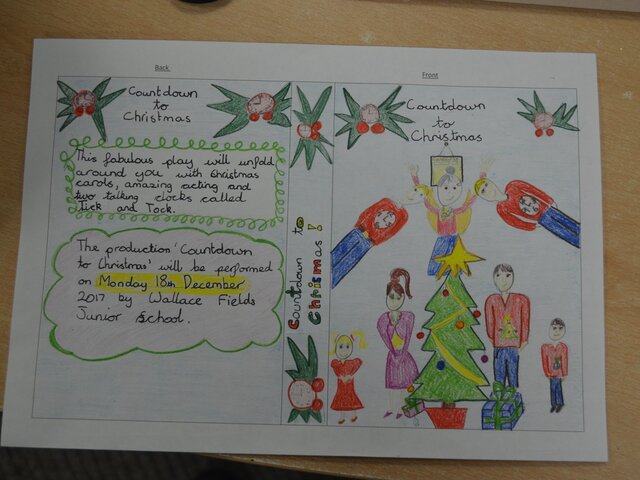 Back
Countdown
to
Christmas
This fabulous play will unfold
around you with Christmas
carols, amazing acting and
two talking clocks called
Tick and Tock.
The production 'Countdown
to Christmas' will be performed
on Monday 18th December
2017 by Wallace Fields
Junior School.
Countdown to
Chrismas!
Front
Countdown
to
Christmas